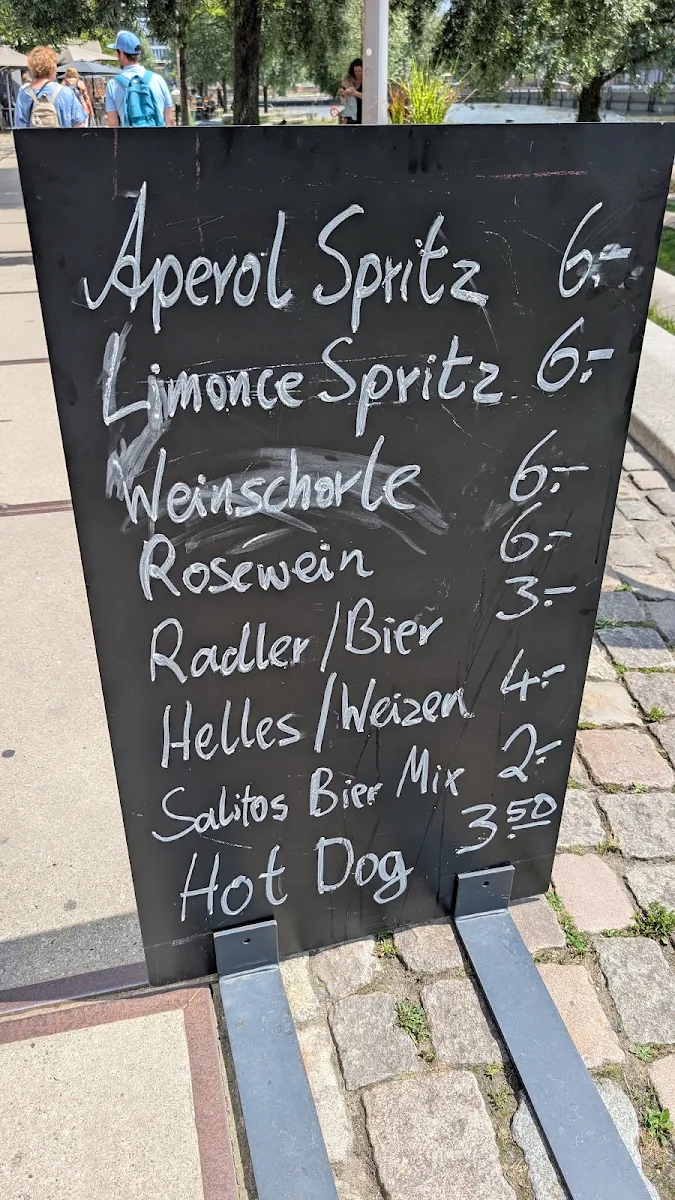 Aperol Spritz 6.-
Limonce Spritz 6.-
Weinschorle 6.-
Rosewein 6.-
Radler/Bier 3.-
Helles/Weizen 4.-
Salitos Bier Mix 2.-
Hot Dog 3.50